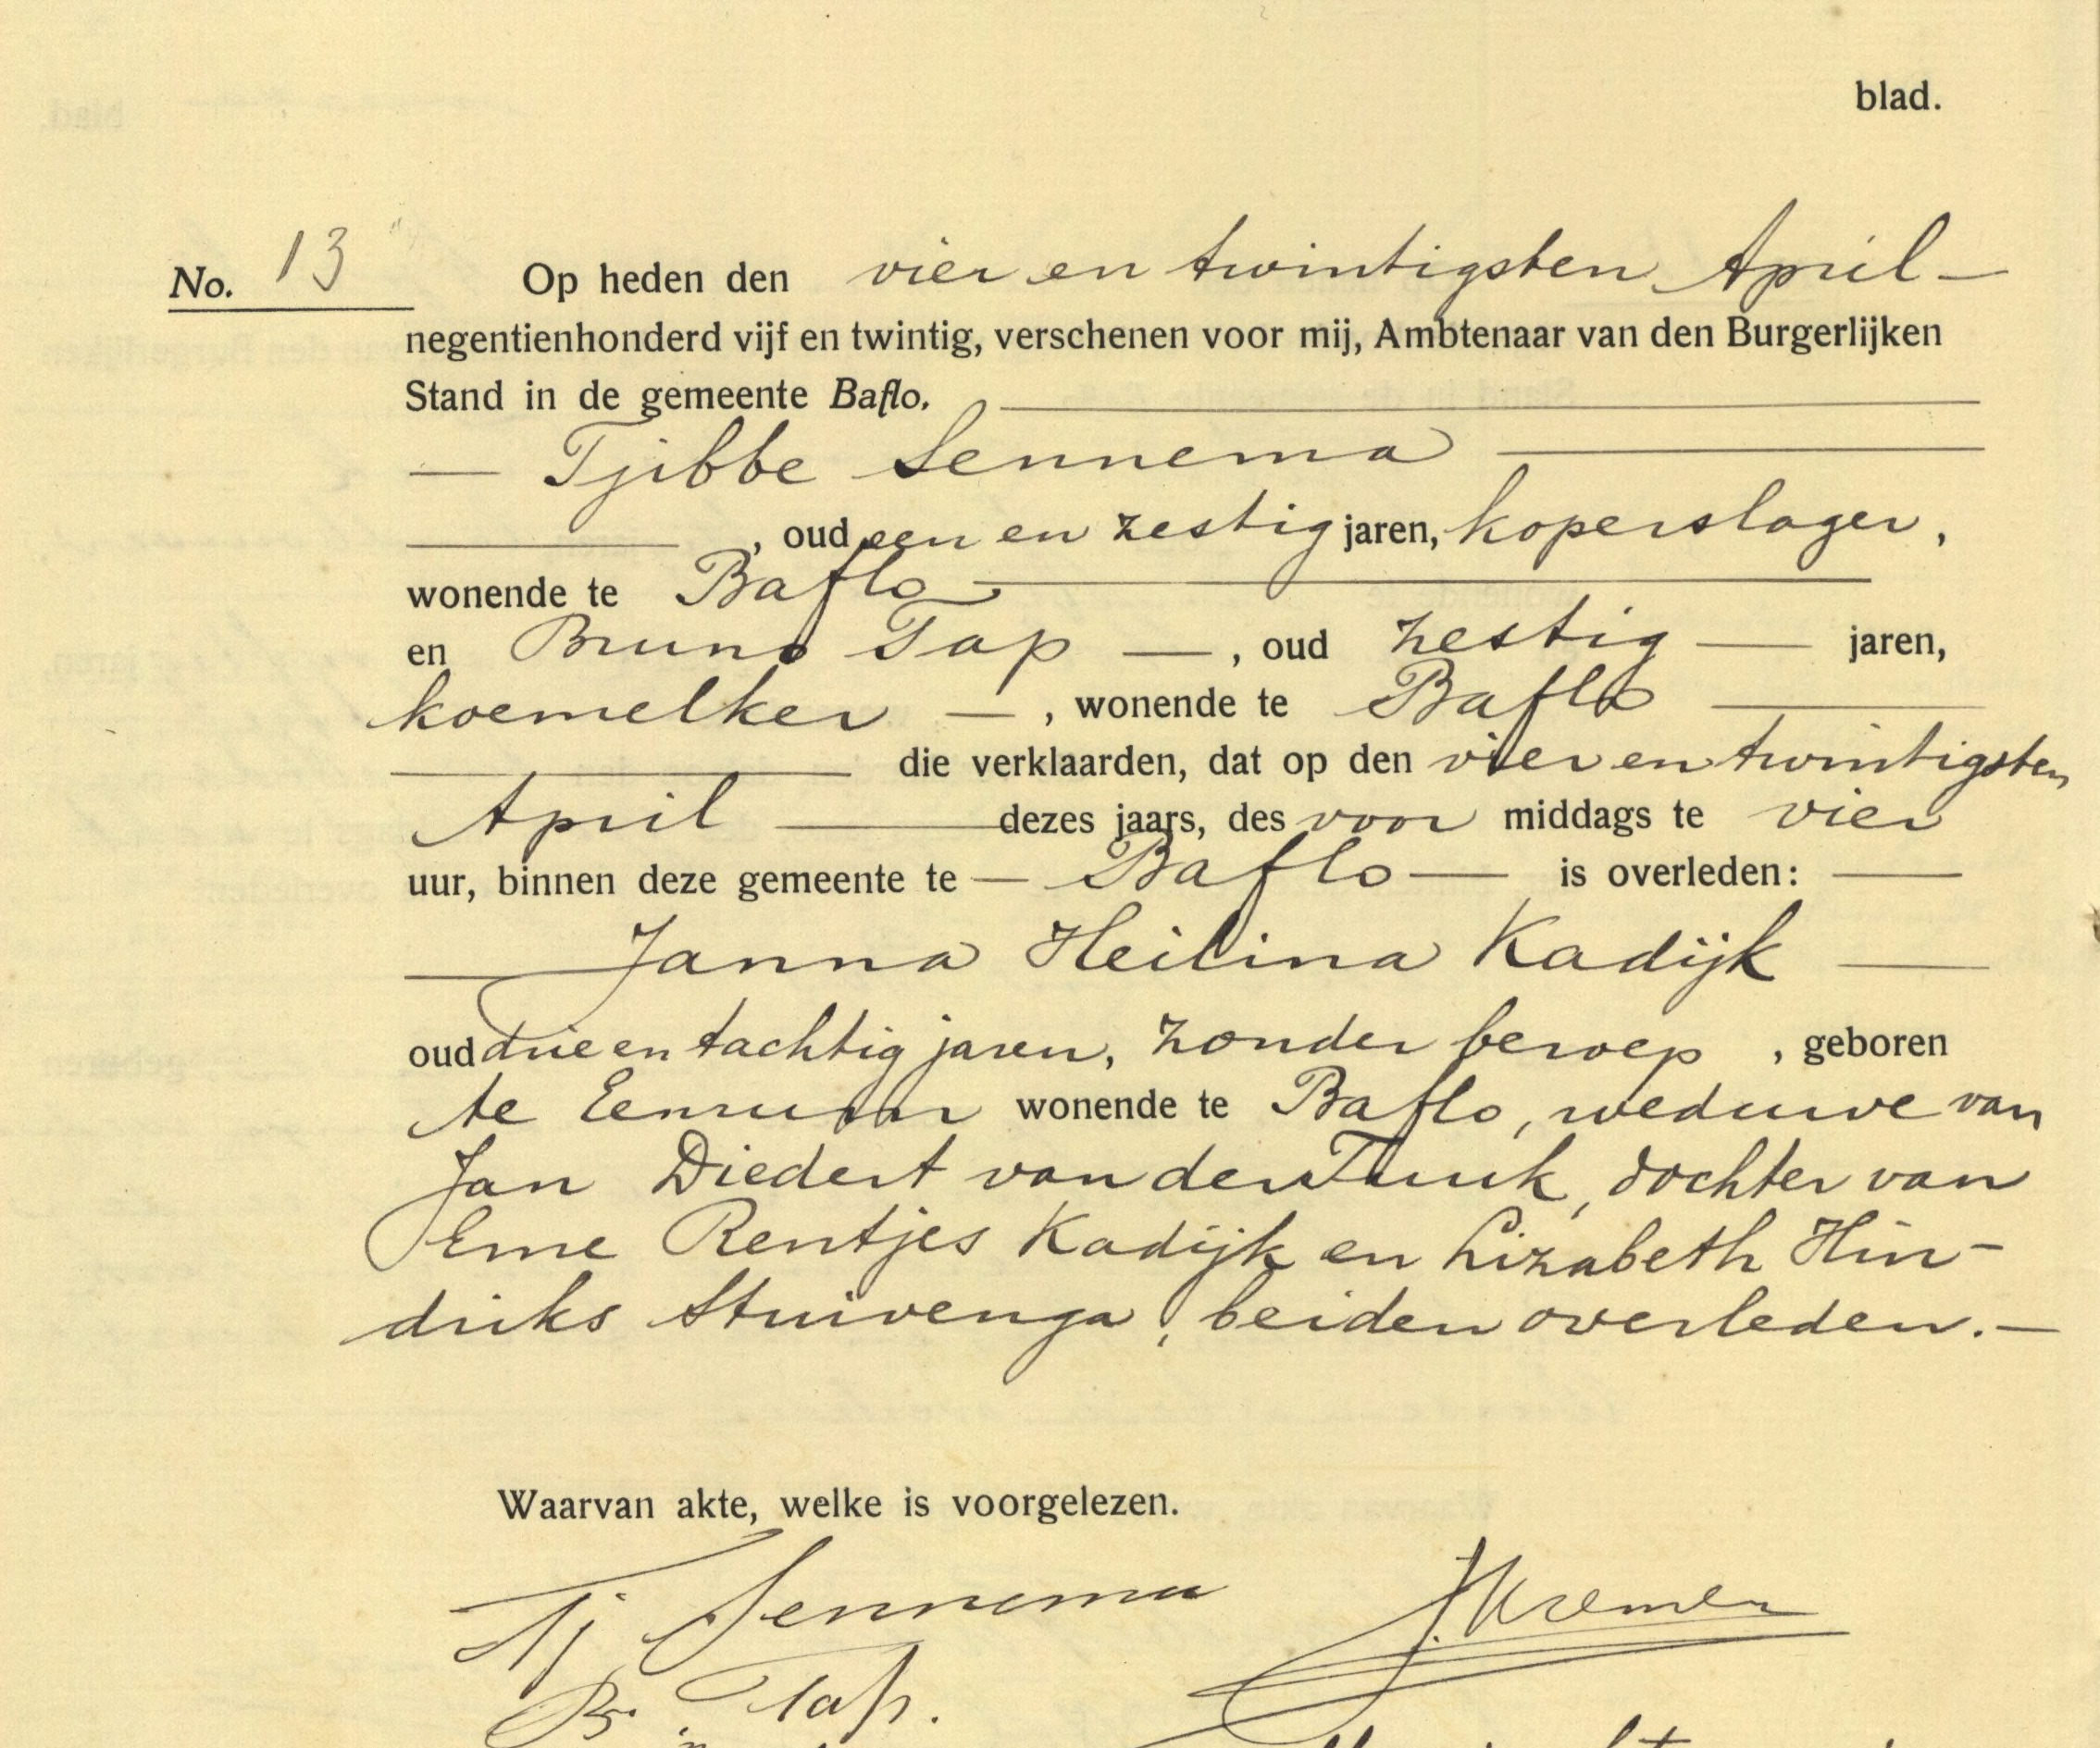 blad.
No. 13 Op heden den vier en twintigsten April —
negentienhonderd vijf en twintig, verschenen voor mij, Ambtenaar van den Burgerlijken
Stand in de gemeente Baflo.
— Tjibbe Sennema
, oud een en zestig jaren, koperslager,
wonende te Baflo
en Bruno Tap —, oud zestig — jaren,
koemelker —, wonende te Baflo
die verklaarden, dat op den vier en twintigsten
April — dezes jaars, des voor middags te vier
uur, binnen deze gemeente te — Baflo — is overleden: —
— Janna Heilina Kadijk —
oud drie en tachtig jaren, zonder beroep, geboren
te Eenrum wonende te Baflo, weduwe van
Jan Diedert van der Tuuk, dochter van
Eme Rentjes Kadijk en Lizabeth Hin-
driks Stuivenga, beiden overleden. —
Waarvan akte, welke is voorgelezen.
Tj Sennema
B. Tap.